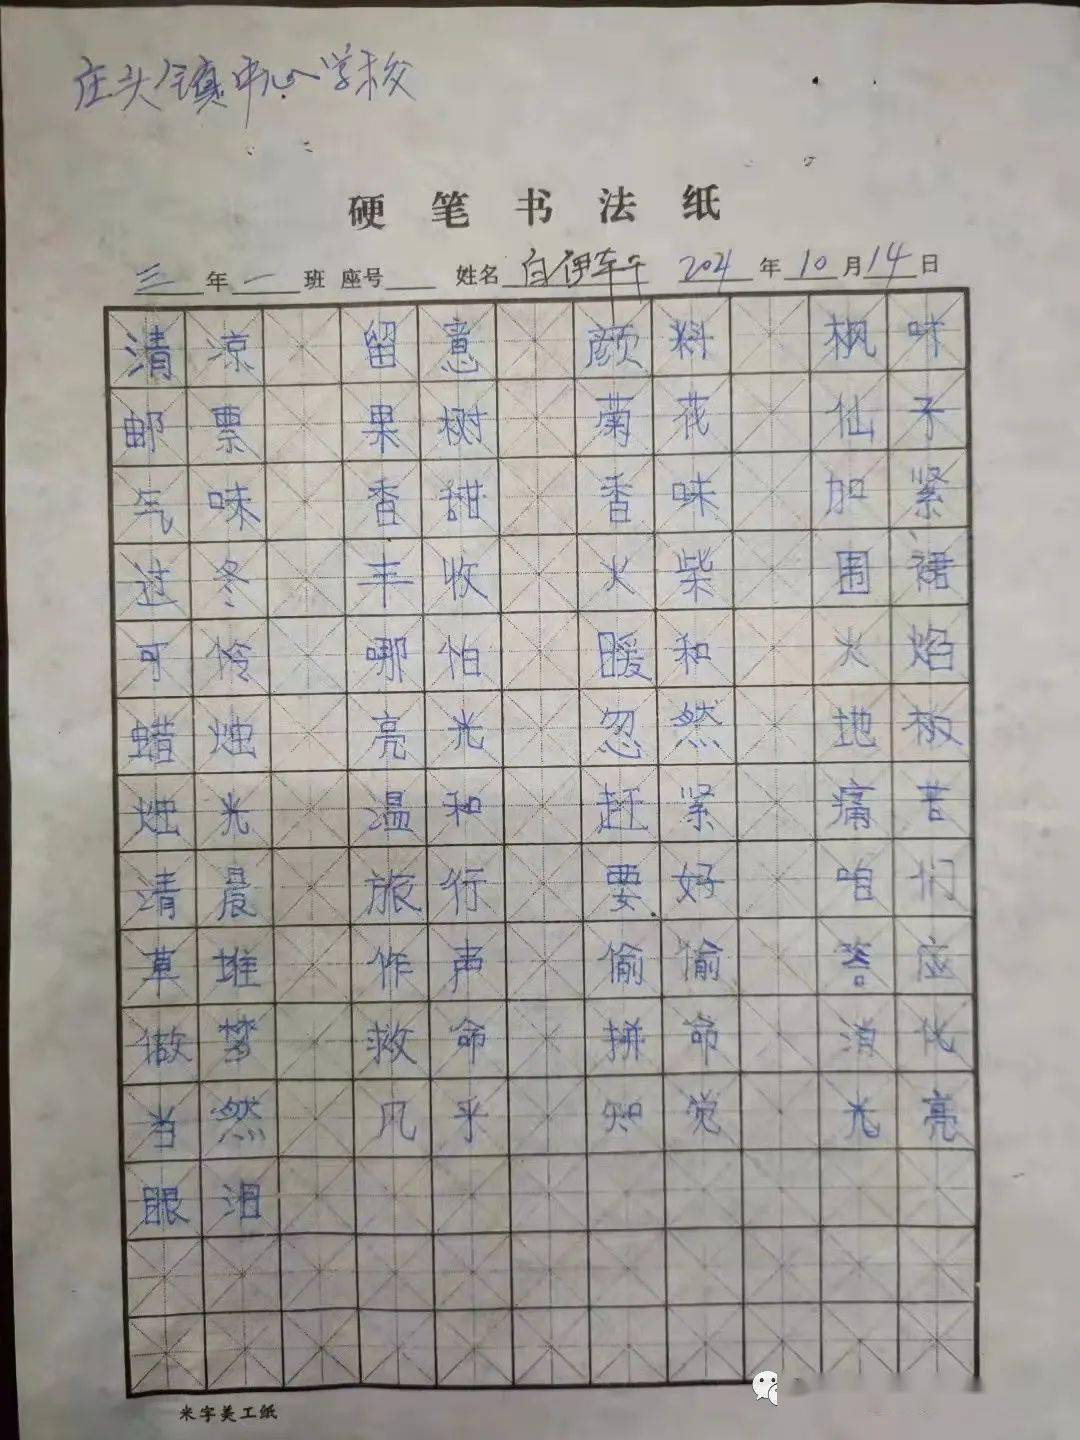 庄头镇中心学校
硬笔书法纸
三年一班 座号 姓名 白伊 2021年10月14日
清凉 留意 颜料 枫叶
邮票 果树 菊花 仙子
气味 香甜 香味 加紧
过冬 丰收 火柴 围裙
可怜 哪怕 暖和 火焰
蜡烛 亮光 忽然 地板
烛光 温和 赶紧 痛苦
清晨 旅行 要好 咱们
草堆 作声 偷偷 答应
做梦 救命 拼命 消化
当然 几乎 知觉 光亮
眼泪
米字美工纸